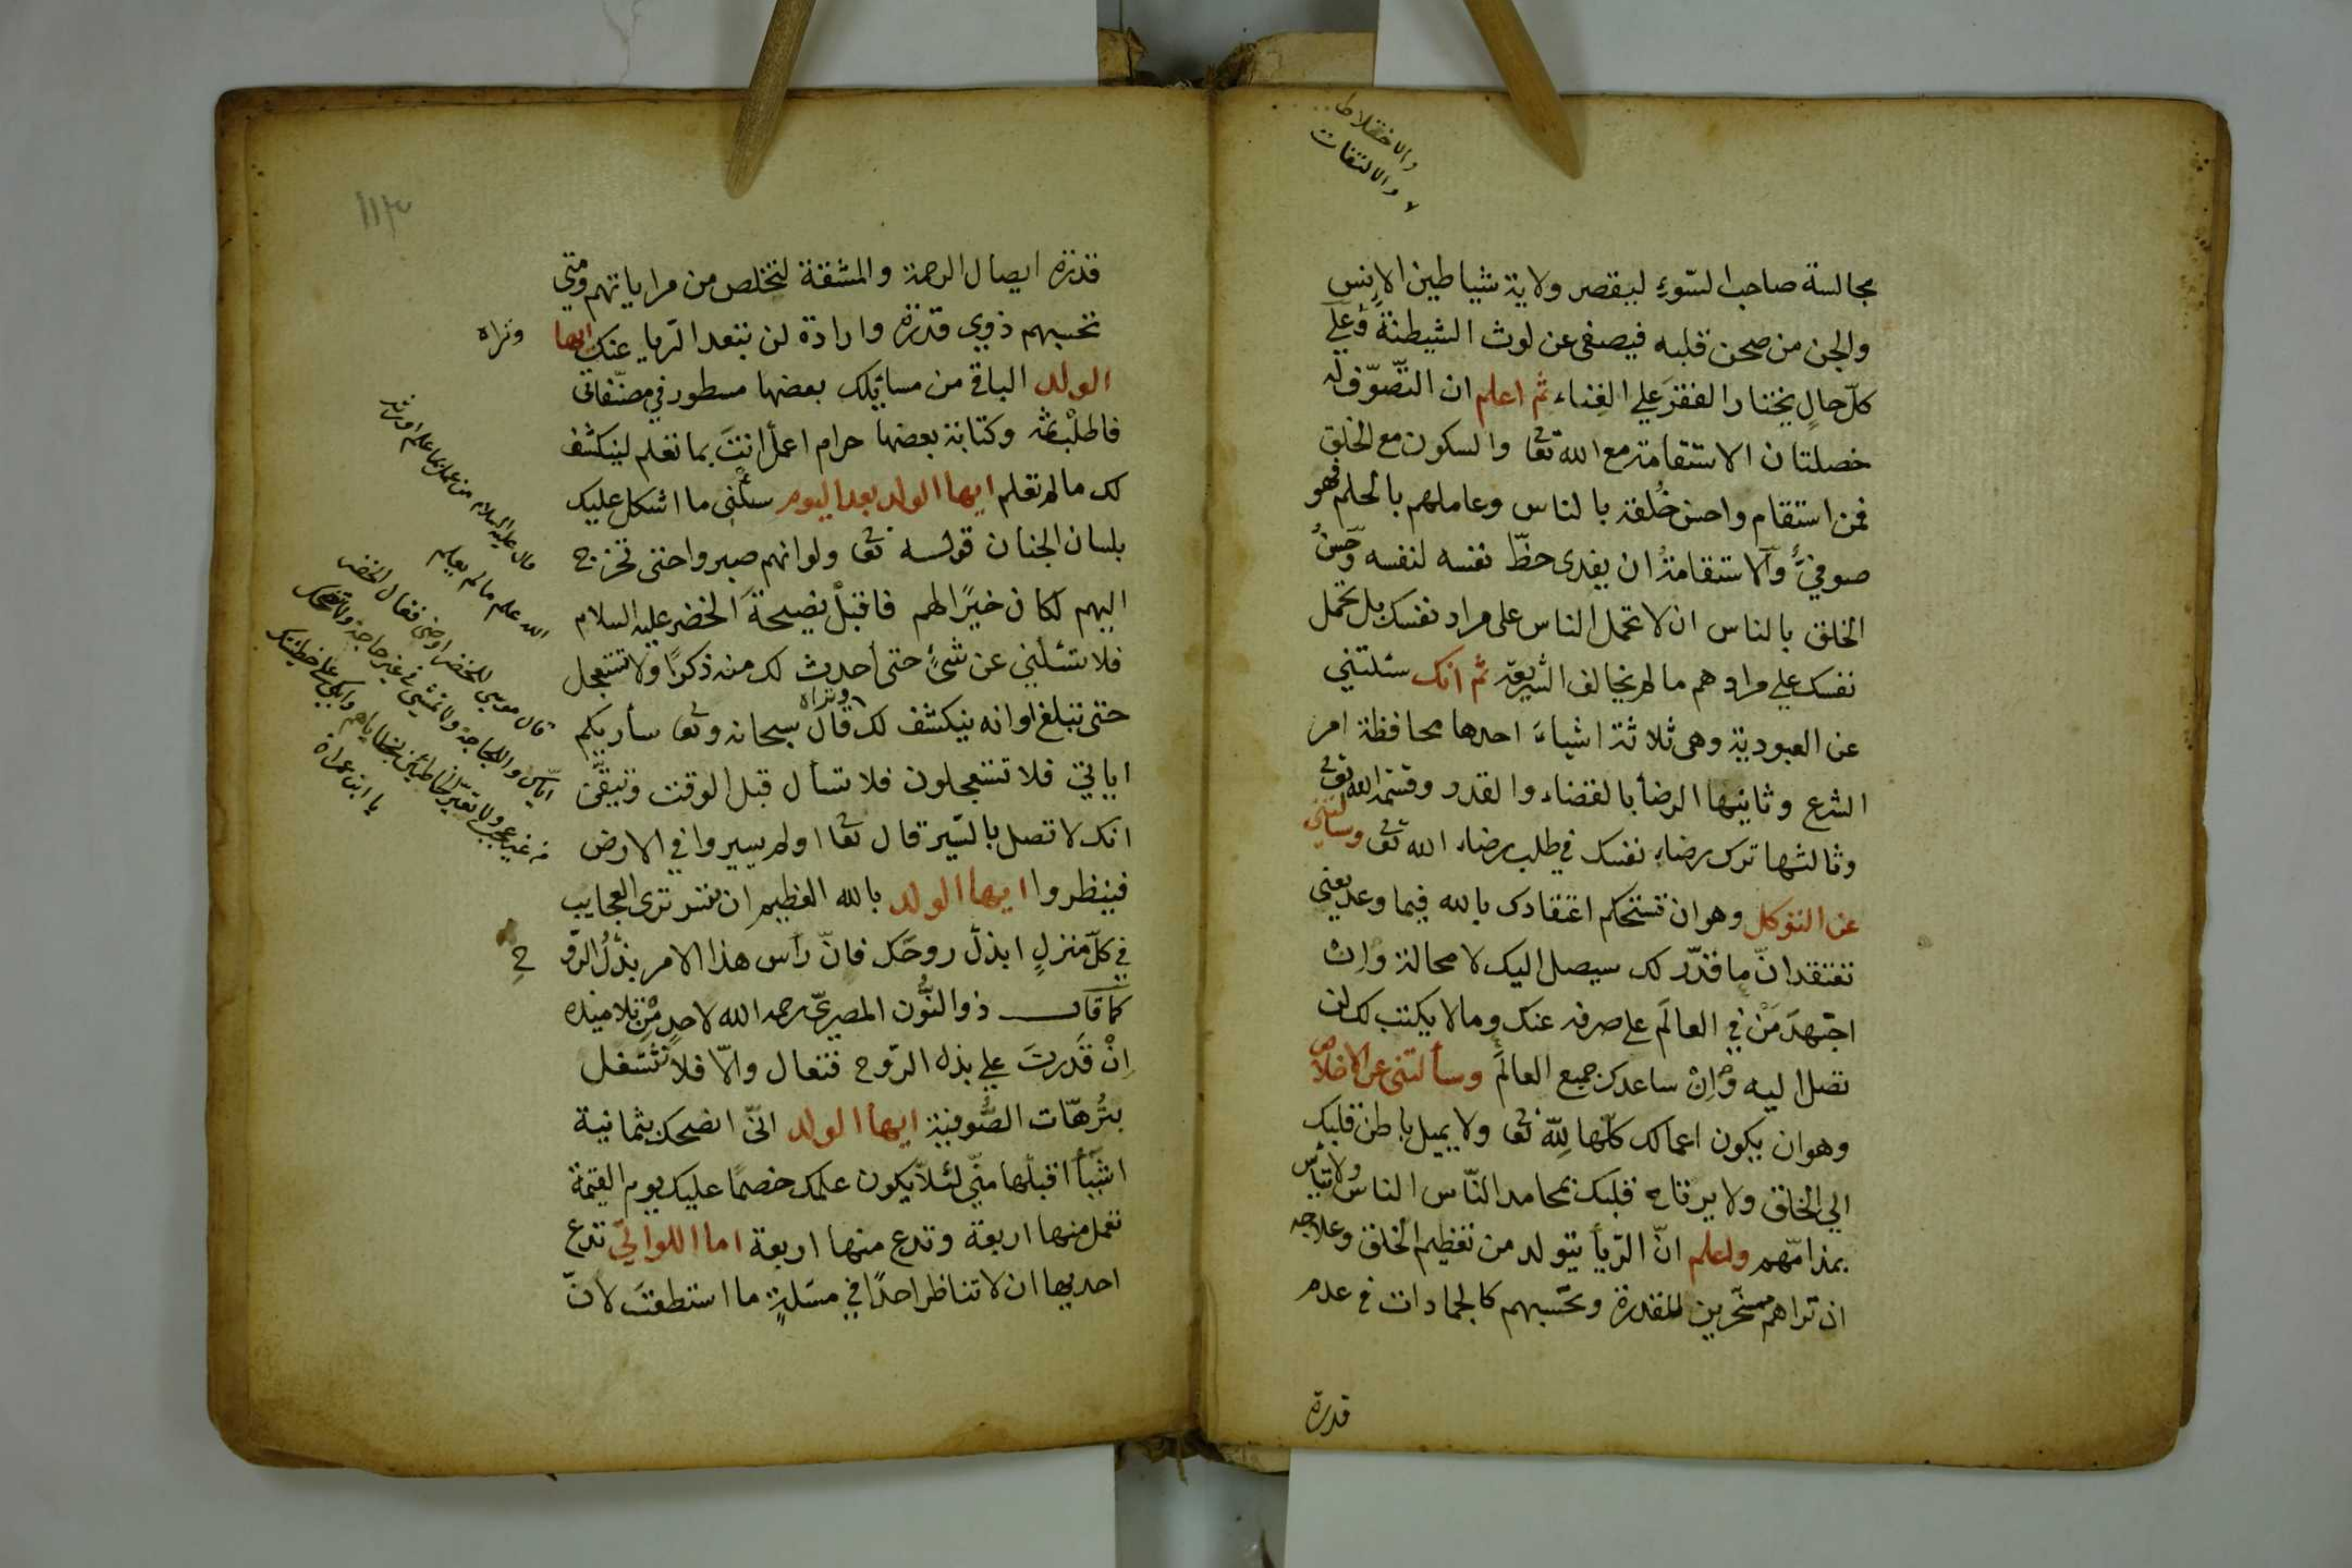 والاختلاط
والالتفات
مجالسة صاحب السّوءِ ليقصر ولاية شياطين الاِنس
والجن من صحن قلبه فيصفى عن لوث الشيطنة وعلى
كلّ حالٍ يختار الفقرَ على الغِناء ثم اعلم ان التّصوّف له
خصلتان الاستقامة مع الله تعا والسكون مع الخلق
فمن استقام واحسن خُلقه بالناس وعاملهم بالحلم فهو
صوفيٌّ والاستقامةُ ان يفدى حظّ نفسه لنفسه وحُسنُ
الخلق بالناس ان لا تحمل الناس على مراد نفسك بل تحمل
نفسك على مرادهم ما لم يخالف الشريعة ثم انك سئلتني
عن العبودية وهى ثلاثة اشياءَ احدها محافظة امر
الشرع وثانيها الرضأ بالقضاء والقدر وقسمة الله تعالى
وثالثها ترك رضاءِ نفسك في طلب رضاء الله تعا وسألتنى
عن التوكل وهو ان تستحكم اعتقادك بالله فيما وعد يعنى
تعتقد انّ ما قدّر لك سيصل اليك لا محالة واِن
اجتهدَ مَنْ في العالَم على صرفه عنك وما لا يكتب لك لن
تصل اليه واِنْ ساعدك جميع العالَم وسألتنى عن الاخلاص
وهو ان يكون اعمالك كلّها لِلّه تعا ولا يميل باطن قلبك
الى الخلق ولا يرتاح قلبك بمحامد النّاس الناس ولا تيأس
بمذامّهم واعلم انّ الرّيأ يتولد من تعظيم الخلق وعلاجه
ان تراهم مسخّرين للقدرة وتحسبهم كالجمادات فى عدم
قدرة
١١٣
قدرة ايصال الرحمة والمشقة لتخلص من مراياتهم ومتى
تحسبهم ذوى قدرة وارادة لن يبعد الرّيا عنك ايها
وتراه
الولد الباقى من مسائلك بعضها مسطور في مصنّفاتى
فاطلبْ ثمّه وكتابة بعضها حرام اعمل انتَ بما تعلم لينكشف
لك ما لم تعلم ايها الولد بعد اليوم سئلنى ما اشكل عليك
بلسان الجنان قوله تعا ولو انهم صبروا حتى تخرج
اليهم لكان خيرًا لهم فاقبلْ نصيحةَ الخضر عليه السلام
فلا تسئلني عن شئٍ حتى احدث لك منه ذكرًا ولا تستعجل
وتراه
حتى تبلغ اوانه ينكشف لك قال سبحانه وتعا سأريكم
اياتي فلا تستعجلون فلا تسأل قبل الوقت وتيقّن
انك لا تصل بالسّير قال تعا اولم يسيروا في الارض
فينظروا ايها الولد بالله العظيم ان تسر ترى العجايب
في كلّ منزلٍ ابذل روحَك فانّ رأس هذا الامر بذْلُ الرّو
حِ
كما قال ذو النّون المصرىّ رحمه الله لاحدٍ مْن تلاميذه
اِنْ قَدِرتَ على بذل الرّوح فتعال والّا فلا تشتغل
بتُرهّات الصُّوفية ايها الولد انّى انصحك بثمانية
اشيأ اقبلْها منّى لئلّا يكون علمك خصمًا عليك يوم القيمة
تعمل منها اربعة وتدع منها اربعة اما اللواتى تدع
احديها ان لا تناظر احدًا في مسَلةٍ ما استطعتَ لانّ
قال عليه السلام من عمل بما علم اورثه
الله علم ما لم يعلم
قال موسى للخضر اوصنى فقال الخضر
ايّاك واللجاجة ولا تمشى فى غير حاجة ولا تضحك
من غير عجب ولا تعيّر الخاطئين بخطاياهم وابك على خطيئتك
يا ابن عمران